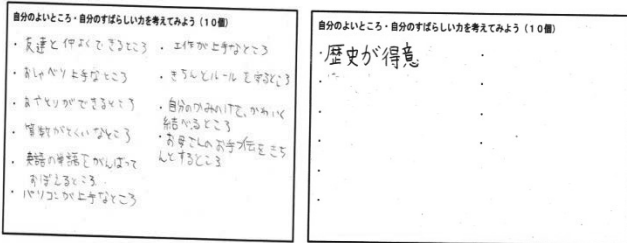 自分のよいところ・自分のすばらしい力を考えてみよう（10個）
・友達と仲よくできるところ
・おしゃべり上手なところ
・あやとりができるところ
・算数がとくいなところ
・英語の単語をがんばって
おぼえるところ
・パソコンが上手なところ
・工作が上手なところ
・きちんとルールを守るところ
・自分のかみのけで、かわいく
結べるところ
・お母さんのお手伝をきち
んとするところ
自分のよいところ・自分のすばらしい力を考えてみよう（10個）
・歴史が得意